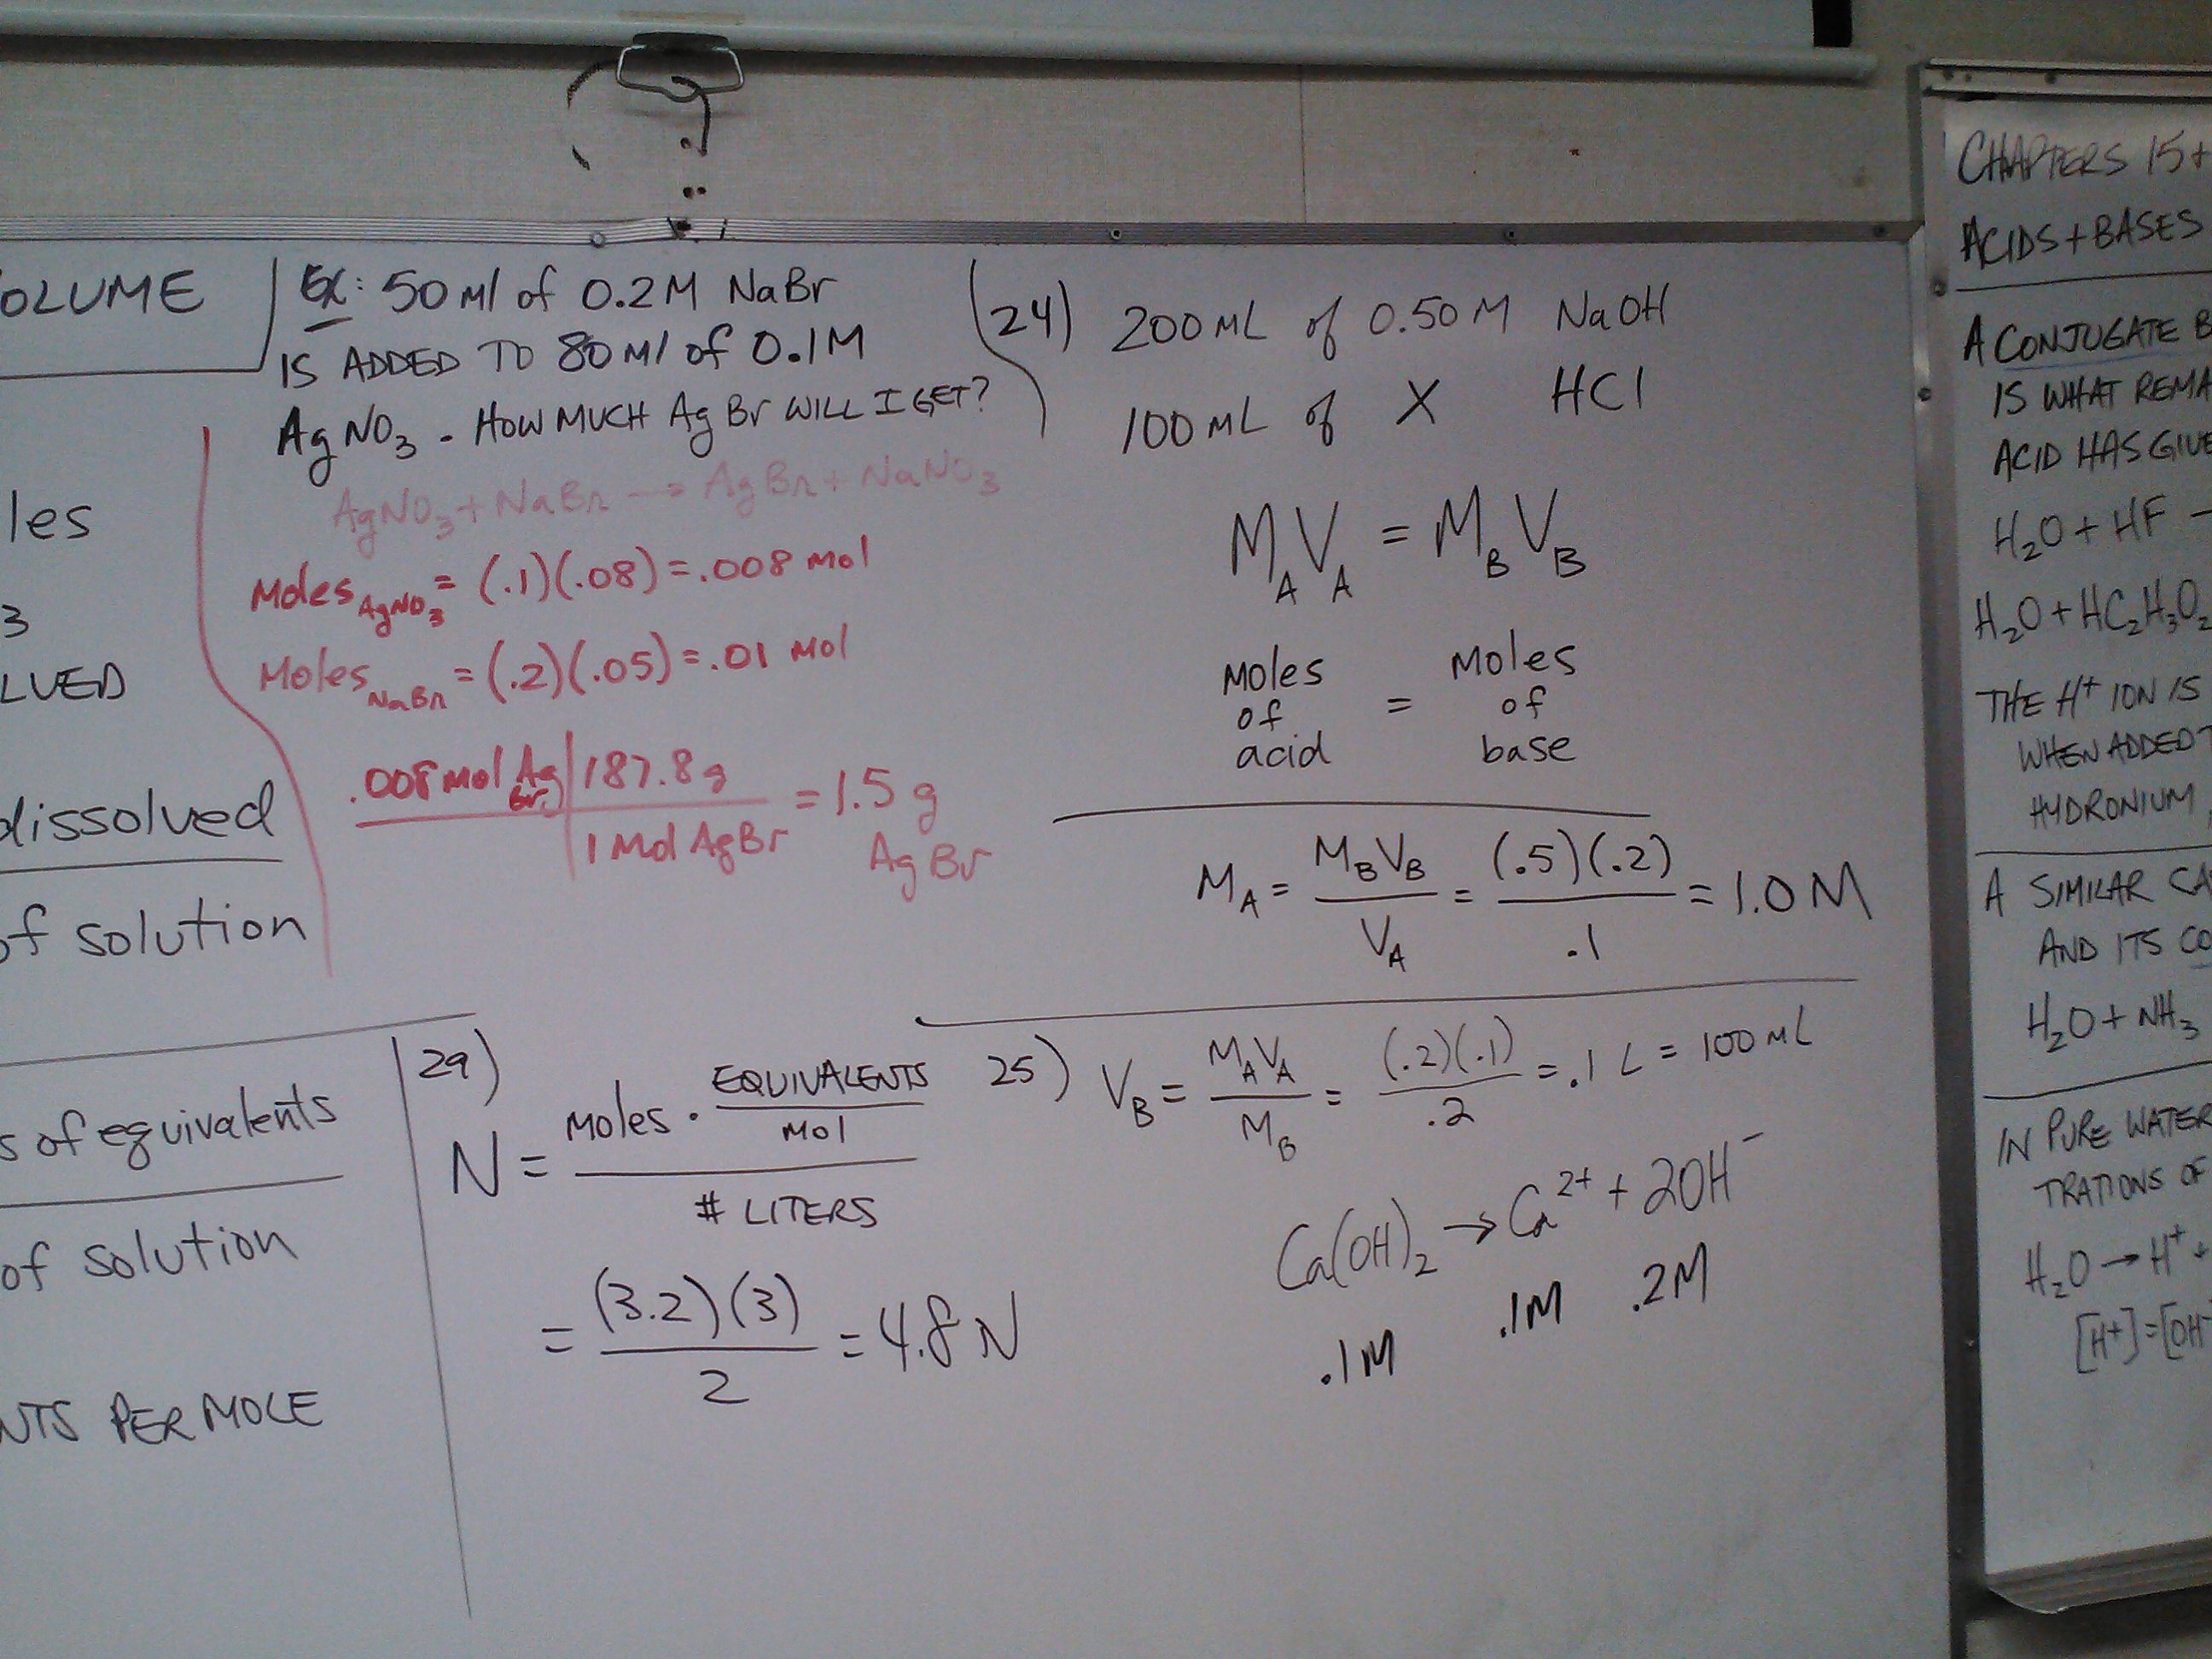 OLUME
les
3
LVED
dissolved
of solution
s of equivalents
of solution
NTS PER MOLE
Ex: 50 ml of 0.2M NaBr
IS ADDED TO 80 ml of 0.1M
AgNO₃ - HOW MUCH AgBr WILL I GET?
AgNO₃ + NaBr → AgBr + NaNO₃
Moles AgNO₃ = (.1)(.08) = .008 mol
Moles NaBr = (.2)(.05) = .01 mol
.008 mol AgBr | 187.8 g
1 Mol AgBr
= 1.5 g
AgBr
29)
N = Moles · EQUIVALENTS / MOL
# LITERS
= (3.2)(3) / 2 = 4.8 N
24) 200 mL of 0.50 M NaOH
100 mL of X HCl
M_A V_A = M_B V_B
moles of acid = moles of base
M_A = M_B V_B / V_A = (.5)(.2) / .1 = 1.0 M
25) V_B = M_A V_A / M_B = (.2)(.1) / .2 = .1 L = 100 mL
Ca(OH)₂ → Ca²⁺ + 2OH⁻
.1M .1M .2M
CHAPTERS 15+
ACIDS + BASES
A CONJUGATE B
IS WHAT REMA
ACID HAS GIVE
H₂O + HF –
H₂O + HC₂H₃O₂
THE H⁺ ION IS
WHEN ADDED T
HYDRONIUM
A SIMILAR CA
AND ITS CO
H₂O + NH₃
IN PURE WATER
TRATIONS OF
H₂O → H⁺ +
[H⁺] = [OH⁻